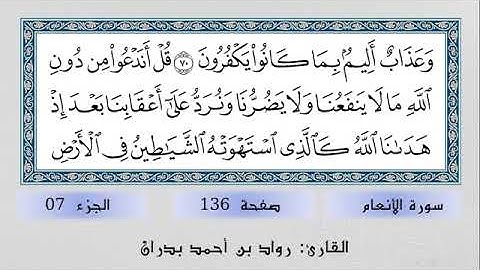 وَعَذَابٌ أَلِيمٌۢ بِمَا كَانُوا۟ يَكْفُرُونَ ٧٠ قُلْ أَنَدْعُوا۟ مِن دُونِ
ٱللَّهِ مَا لَا يَنفَعُنَا وَلَا يَضُرُّنَا وَنُرَدُّ عَلَىٰٓ أَعْقَابِنَا بَعْدَ إِذْ
هَدَىٰنَا ٱللَّهُ كَٱلَّذِى ٱسْتَهْوَتْهُ ٱلشَّيَـٰطِينُ فِى ٱلْأَرْضِ
سورة الإنعام صفحة 136 الجزء 07
القارئ: رواد بن أحمد بدران